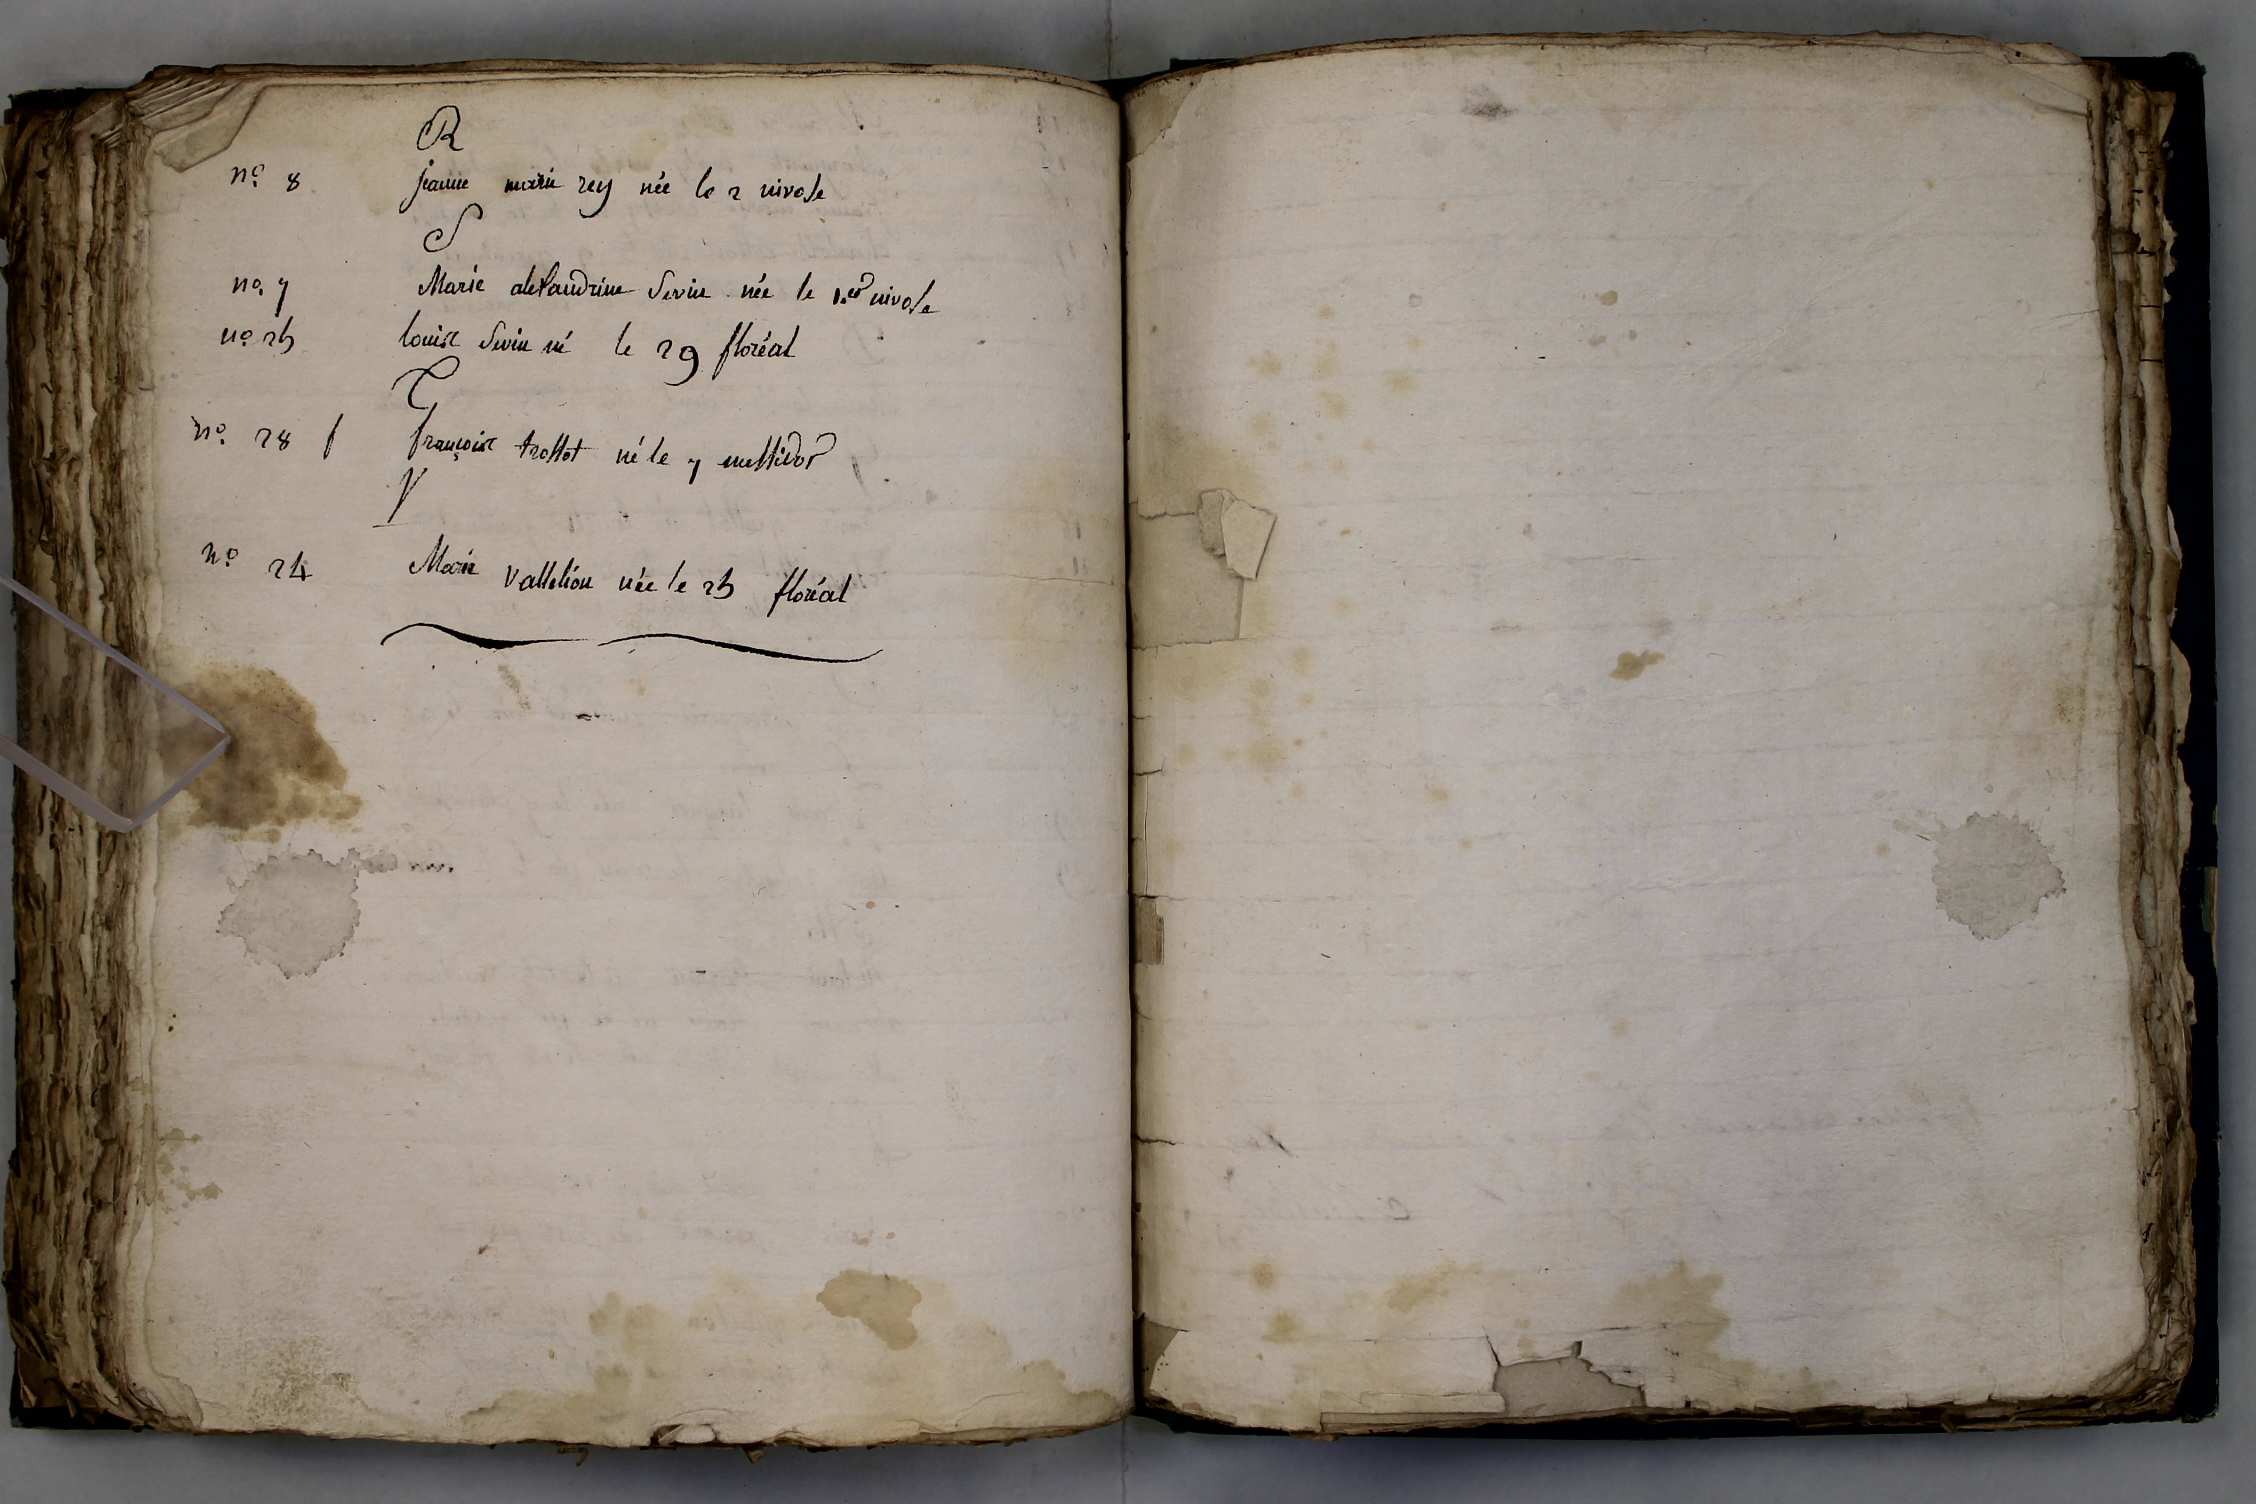 R
n.o 8 jeanne marie rey née le 2 nivose
S
n.o 7 Marie alexandrine Sevin née le 1.er nivose
n.o 25 louis Sevin né le 29 floréal
T
n.o 28 f françois trottot né le 7 messidor
V
n.o 24 Marie née le 25 floréal